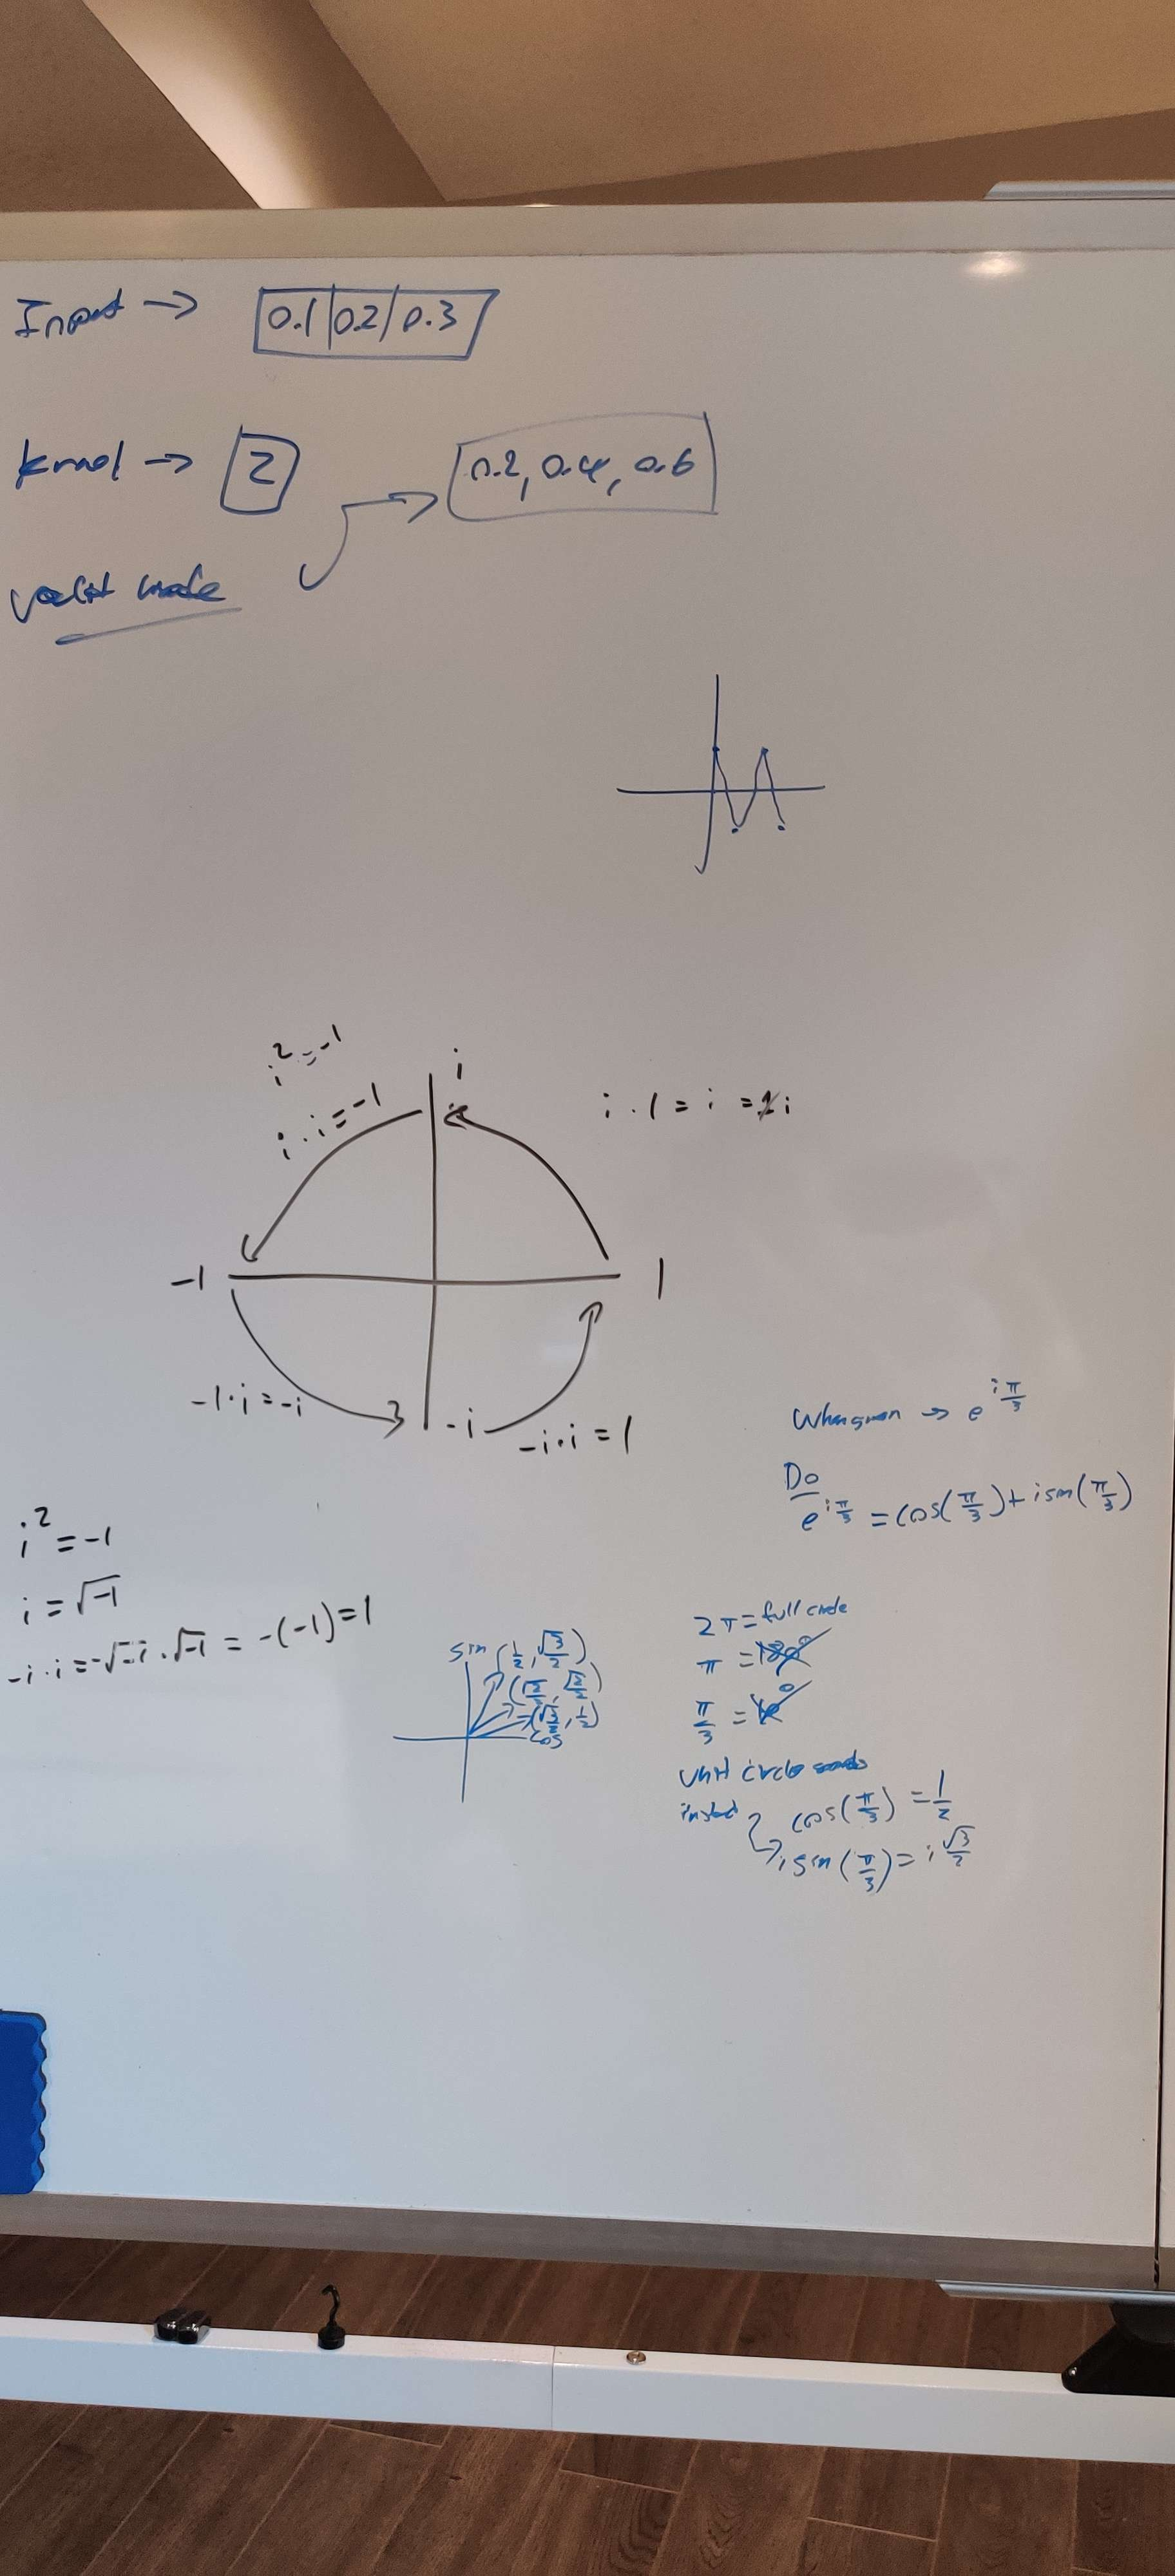 Input → 0.1 | 0.2 | 0.3
kernel → 2
0.2, 0.4, 0.6
valid mode
i² = -1
i
i · i = -1
i · 1 = i = 1i
-1
1
-1 · i = -i
-i
-i · i = 1
When given → e^{i π/3}
Do
e^{i π/3} = cos(π/3) + i sin(π/3)
i² = -1
i = √-1
-i · i = -√-1 · √-1 = -(-1) = 1
sin
(1/2, √3/2)
(√2/2, √2/2)
(√3/2, 1/2)
cos
2π = full circle
π = 180°
π/3 =
unit circle
instead
cos(π/3) = 1/2
i sin(π/3) = i √3/2